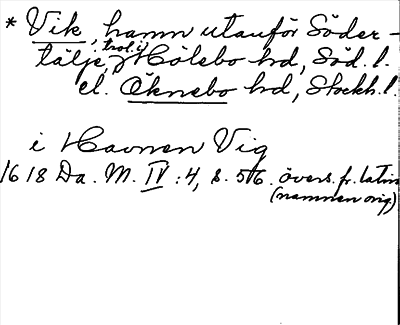 * Vik, hamn utanför Söder-
tälje, trol. i Hölebo hd, Söd. l.
el. Öknebo hd, Stockh. l.
i Havnen Vig
1618 Da. M. IV : 4, s. 56. övers. fr. latin
(namnen orig.)